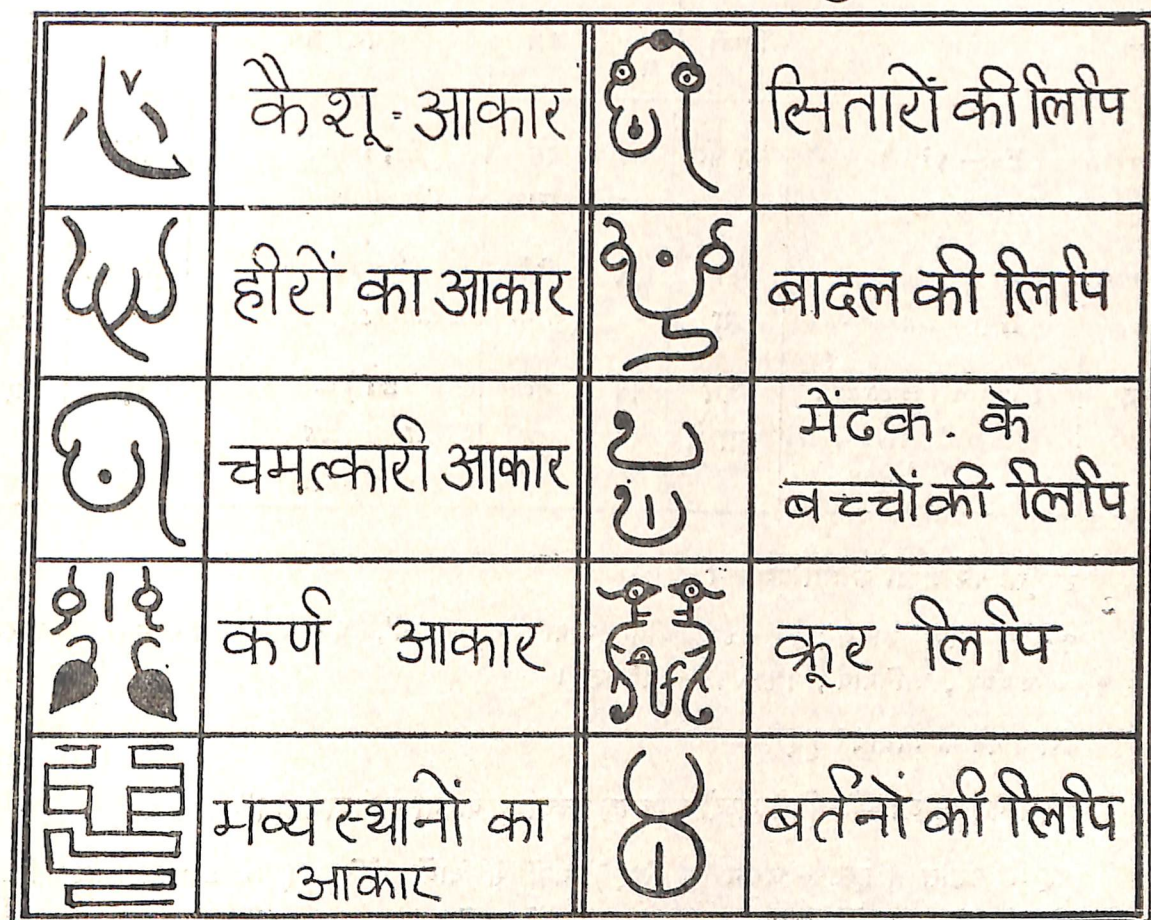 कैशू-आकार
सितारों की लिपि
हीरों का आकार
बादल की लिपि
चमत्कारी आकार
मेंढक. के
बच्चों की लिपि
कर्ण आकार
क्रूर लिपि
भव्य स्थानों का
आकार
बर्तनों की लिपि